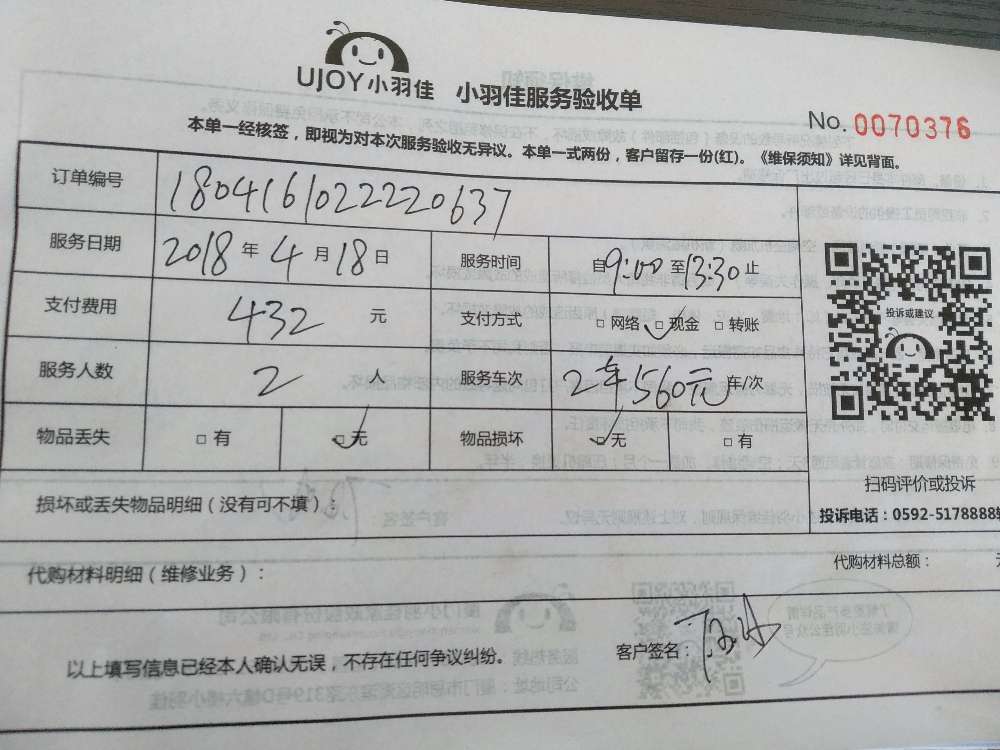 UJOY小羽佳 小羽佳服务验收单
No. 0070376
本单一经核签，即视为对本次服务验收无异议。本单一式两份，客户留存一份(红)。《维保须知》详见背面。
订单编号 180416102220637
服务日期 2018年4月18日 服务时间 自9:00至13:30止
支付费用 432 元 支付方式 □网络 □现金 □转账
服务人数 2 人 服务车次 2车560元 车/次
物品丢失 □有 □无 物品损坏 □无 □有
投诉或建议
扫码评价或投诉
损坏或丢失物品明细（没有可不填）：
投诉电话：0592-5178888
代购材料明细（维修业务）：
代购材料总额：
以上填写信息已经本人确认无误，不存在任何争议纠纷。
客户签名：